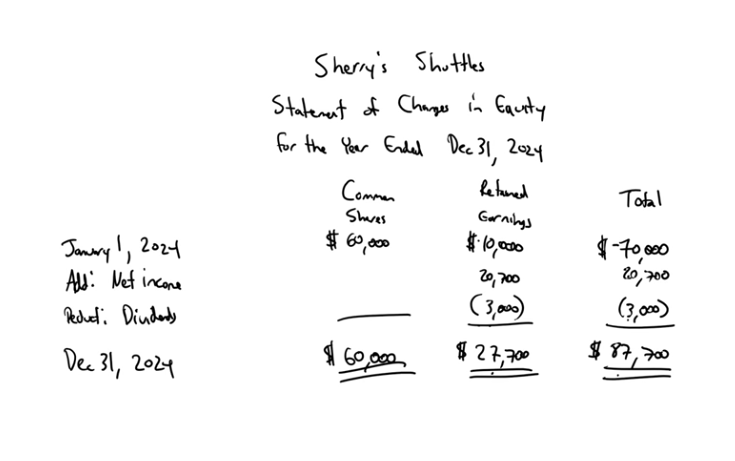 Sherry's Shuttles
Statement of Changes in Equity
for the Year Ended Dec 31, 2024
Common Shares Retained Earnings Total
January 1, 2024 $ 60,000 $ 10,000 $ 70,000
Add: Net income 20,700 20,700
Deduct: Dividends (3,000) (3,000)
Dec 31, 2024 $ 60,000 $ 27,700 $ 87,700